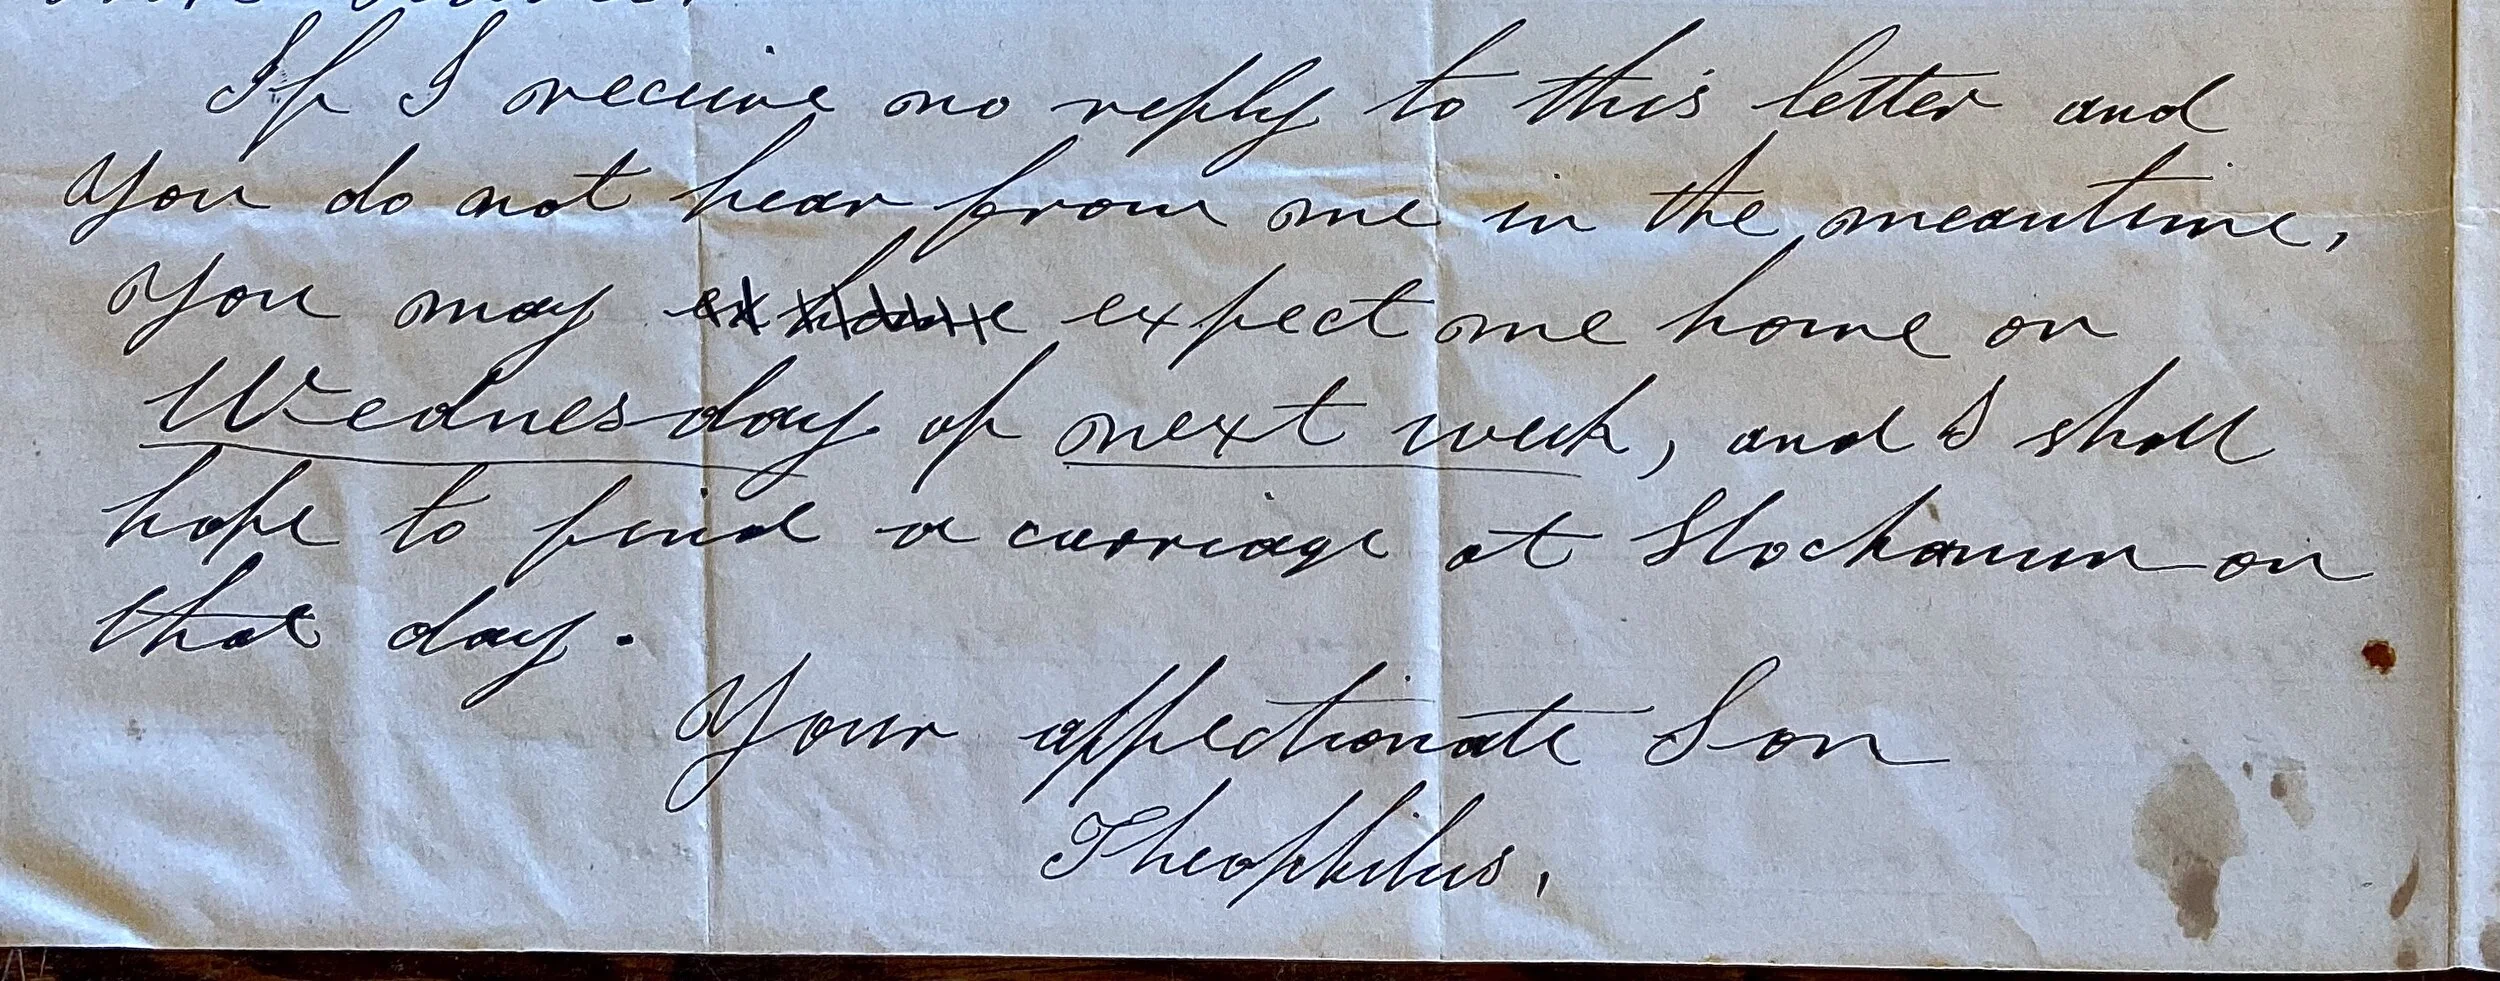 If I receive no reply to this letter and
you do not hear from me in the meantime,
you may expect me home on
Wednesday of next week, and I shall
hope to find a carriage at Hockanum on
that day.
Your affectionate Son
Theophilus.